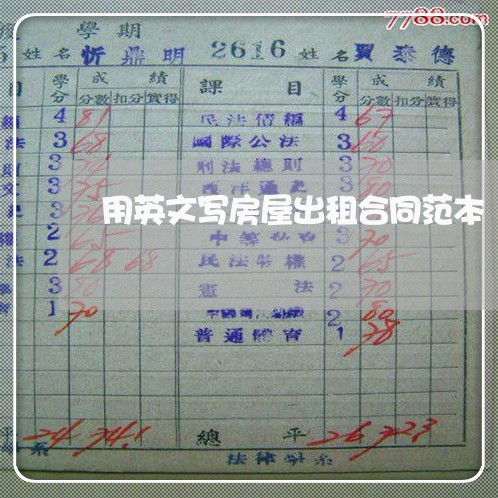 7788.com
學期
姓名 忻鼎明 2616 姓名 賈泰德
目 學分 成績 課目 學分 成績
分數 扣分 實得 分數 扣分 實得
4 81 民法債編 4 67
法 3 68 國際公法 3 60
3 刑法總則 3 70
3 75 西洋通史 3 80
用英文写房屋出租合同范本
2 65 3 70
法 2 68 68 民法物權 2 65
3 80 憲法 2 70
1 70 2 80
普通體育 1 78
平 24 74.1 總平 26 72.3
系 法律學系